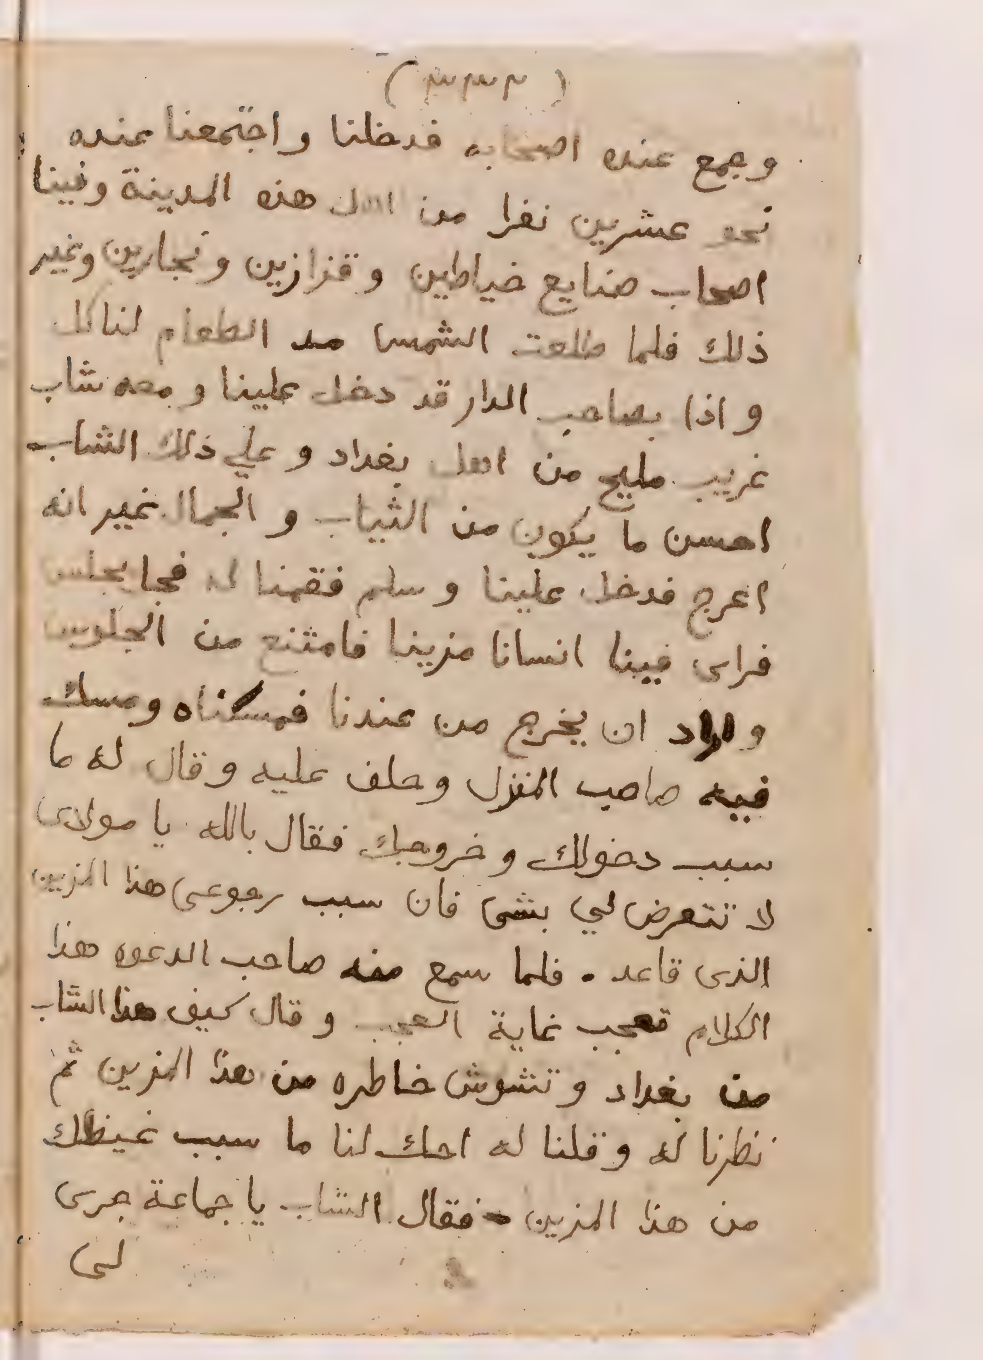 (٣٣٣)
وجمع عنده اصحابه فدخلنا واجتمعنا عنده
نحو عشرين نفرا من اهل هذه المدينة وفينا
اصحاب صنايع خياطين وقزازين ونجارين وغير
ذلك فلما طلعت الشمس مد الطعام لناكل
واذا بصاحب الدار قد دخل علينا ومعه شاب
غريب مليح من اهل بغداد وعلي ذلك الشاب
احسن ما يكون من الثياب والجمال غير انه
اعرج فدخل علينا وسلم فقمنا له فجا يجلس
فراى فينا انسانا مزينا فامتنع من الجلوس
واراد ان يخرج من عندنا فمسكناه ومسك
فيه صاحب المنزل وحلف عليه وقال له ما
سبب دخولك وخروجك فقال بالله يا مولاى
لا تتعرض لي بشى فان سبب رجوعى هذا المزين
الذى قاعد . فلما سمع منه صاحب الدعوه هذا
الكلام تعجب غاية العجب وقال كيف هذا الشاب
من بغداد وتشوش خاطره من هذا المزين ثم
نظرنا له وقلنا له احك لنا ما سبب غيظك
من هذا المزين . فقال الشاب يا جماعة جرى
لى